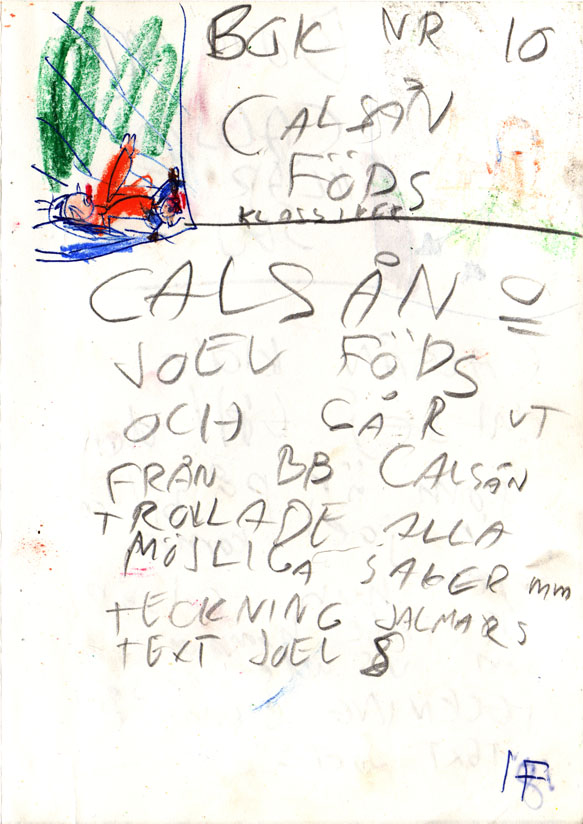 BOK NR 10
CALSÅN
FÖDS
KLASSIKER
CALSÅN O
JOEL FÖDS
OCH GÅR UT
FRÅN BB CALSÅN
TROLLADE ALLA
MÖJLIGA SAKER mm
TECKNING JALMARS
TEXT JOEL 8